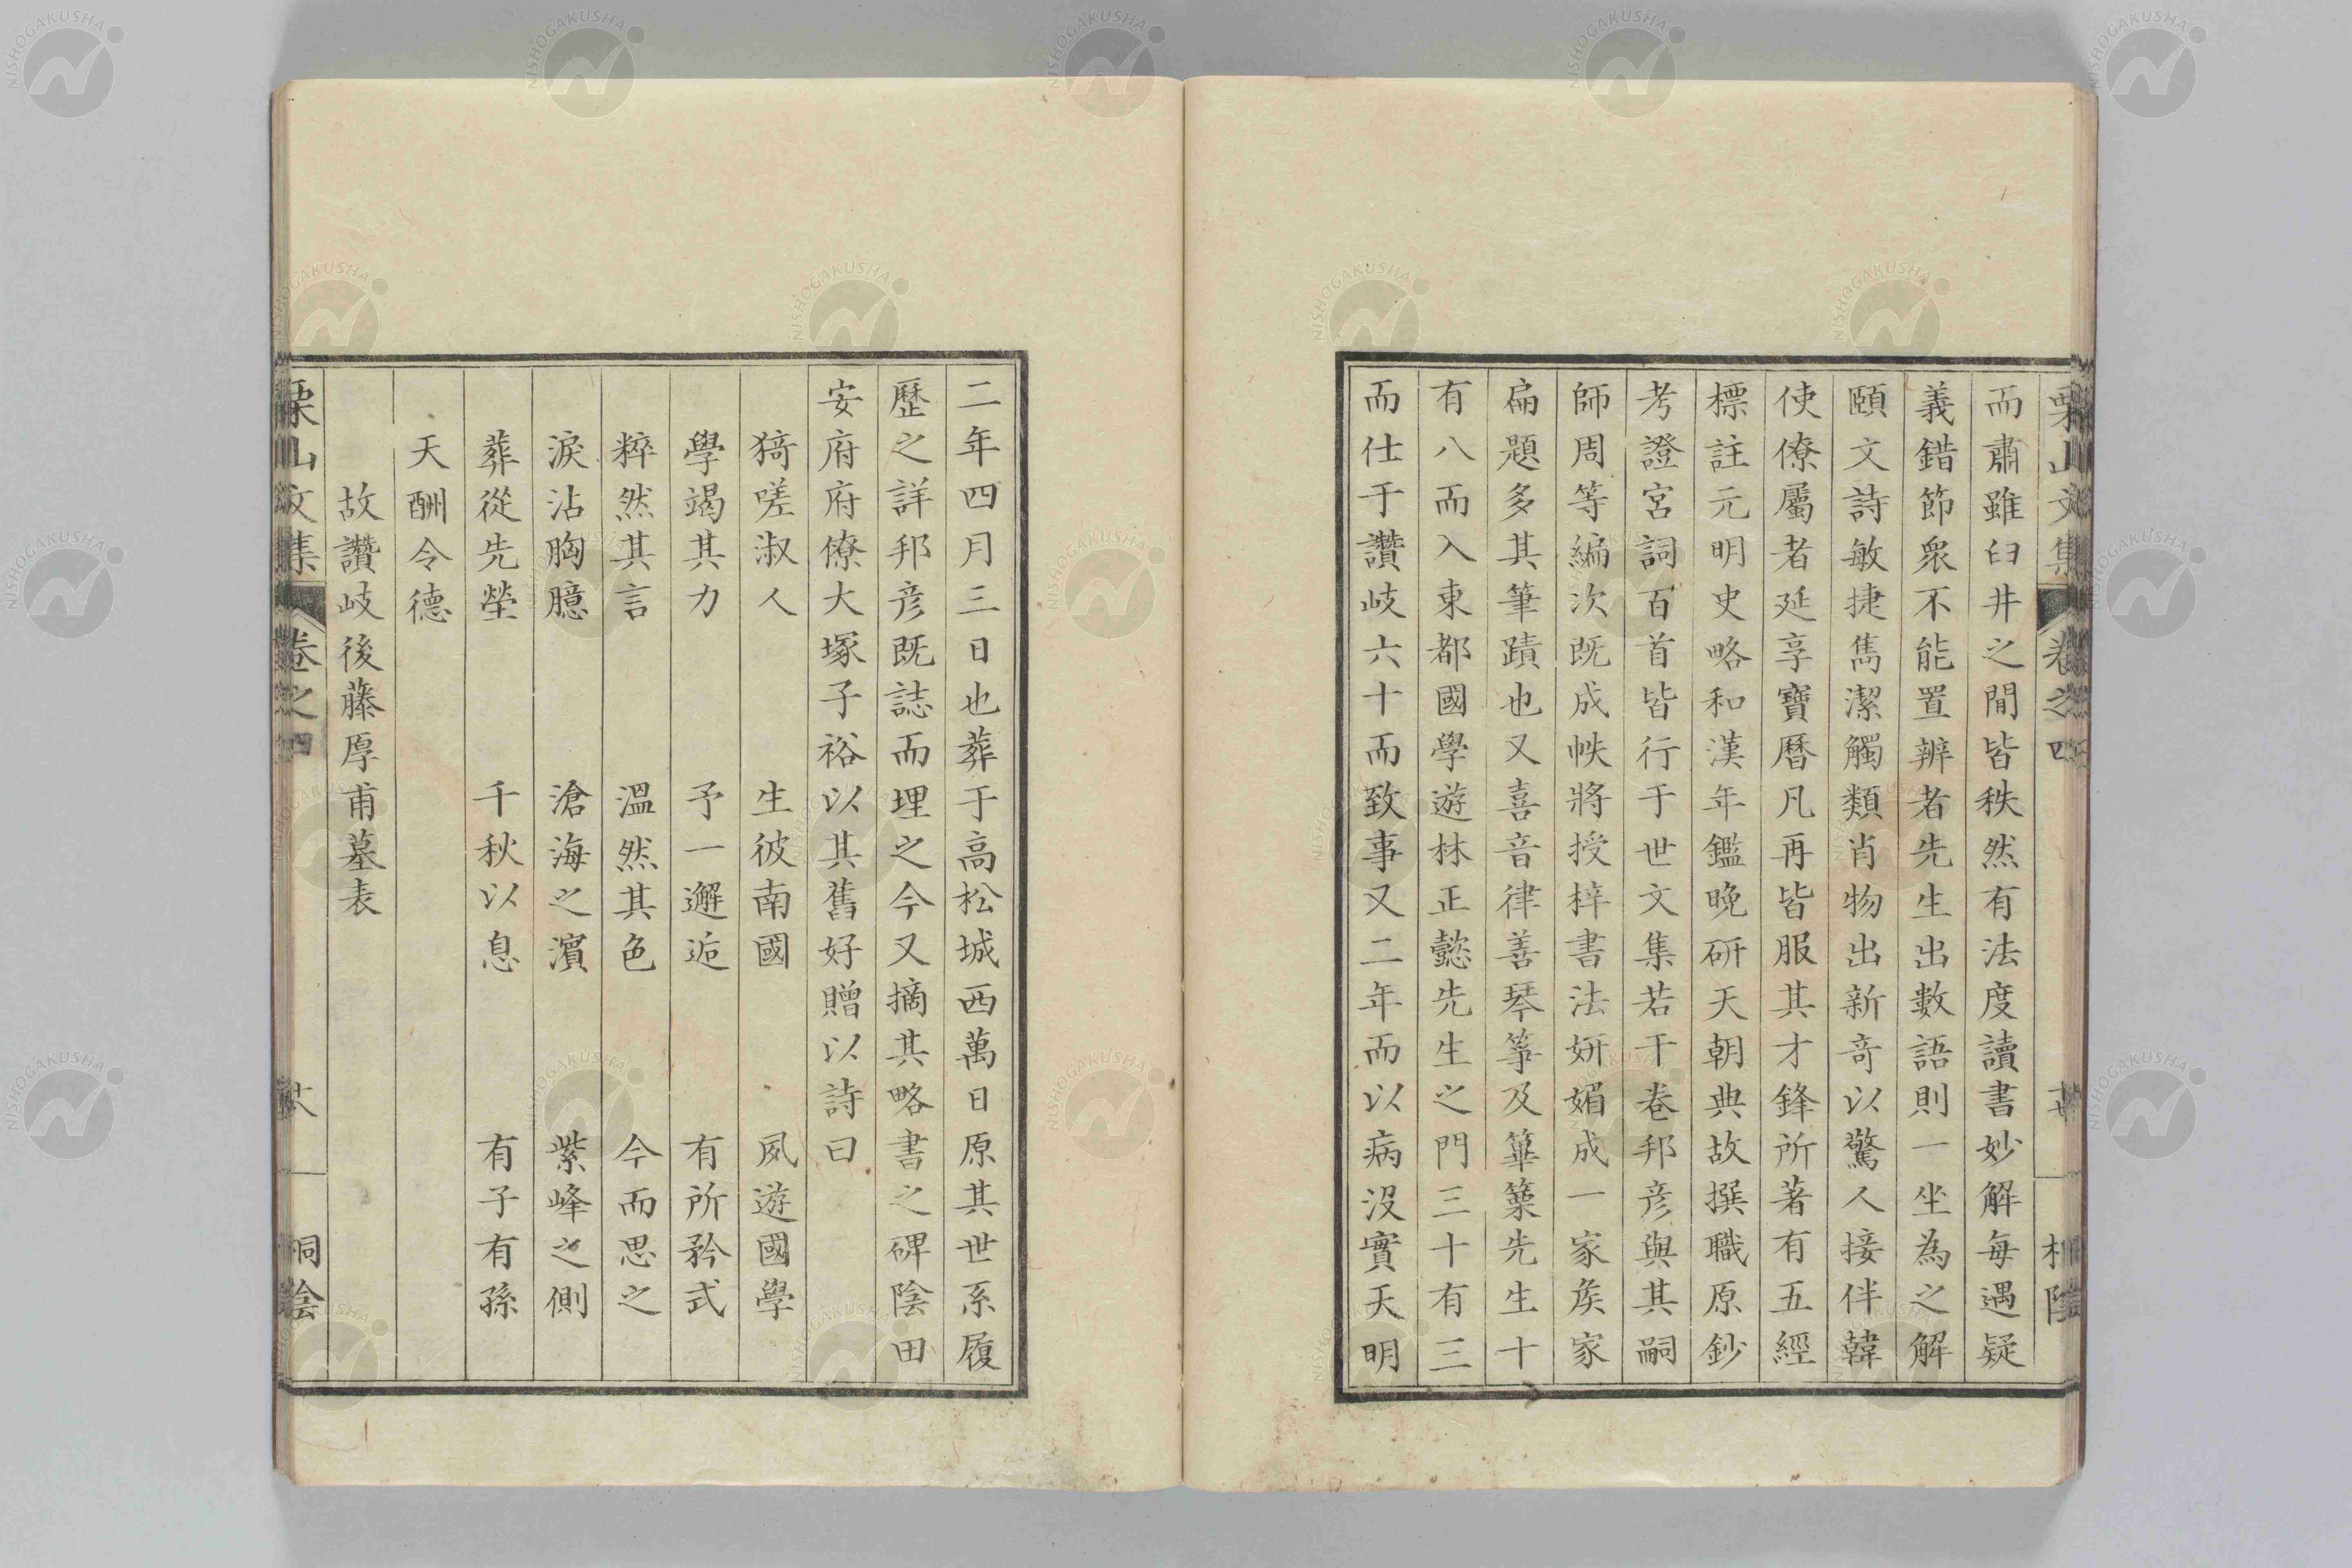 栗山文集 卷之四
而肅雖臼井之間皆秩然有法度讀書妙解每遇疑
義錯節衆不能置辨者先生出數語則一坐為之解
頤文詩敏捷雋潔觸類肖物出新奇以驚人接伴韓
使僚屬者延享寶曆凡再皆服其才鋒所著有五經
標註元明史略和漢年鑑晚研天朝典故撰職原鈔
考證宮詞百首皆行于世文集若干卷邦彦與其嗣
師周等編次既成帙將授梓書法妍媚成一家矦家
扁題多其筆蹟也又喜音律善琴筝及篳篥先生十
有八而入東都國學遊林正懿先生之門三十有三
而仕于讚岐六十而致事又二年而以病沒實天明
二年四月三日也葬于高松城西萬日原其世系履
歷之詳邦彦既誌而埋之今又摘其略書之碑陰田
安府府僚大塚子裕以其舊好贈以詩曰
猗嗟淑人 生彼南國 夙遊國學
學竭其力 予一邂逅 有所矜式
粹然其言 溫然其色 今而思之
淚沾胸臆 滄海之濱 紫峰之側
葬從先塋 千秋以息 有子有孫
天酬令德
故讚岐後藤厚甫墓表
栗山文集 卷之四 桐陰
NISHOGAKUSHA